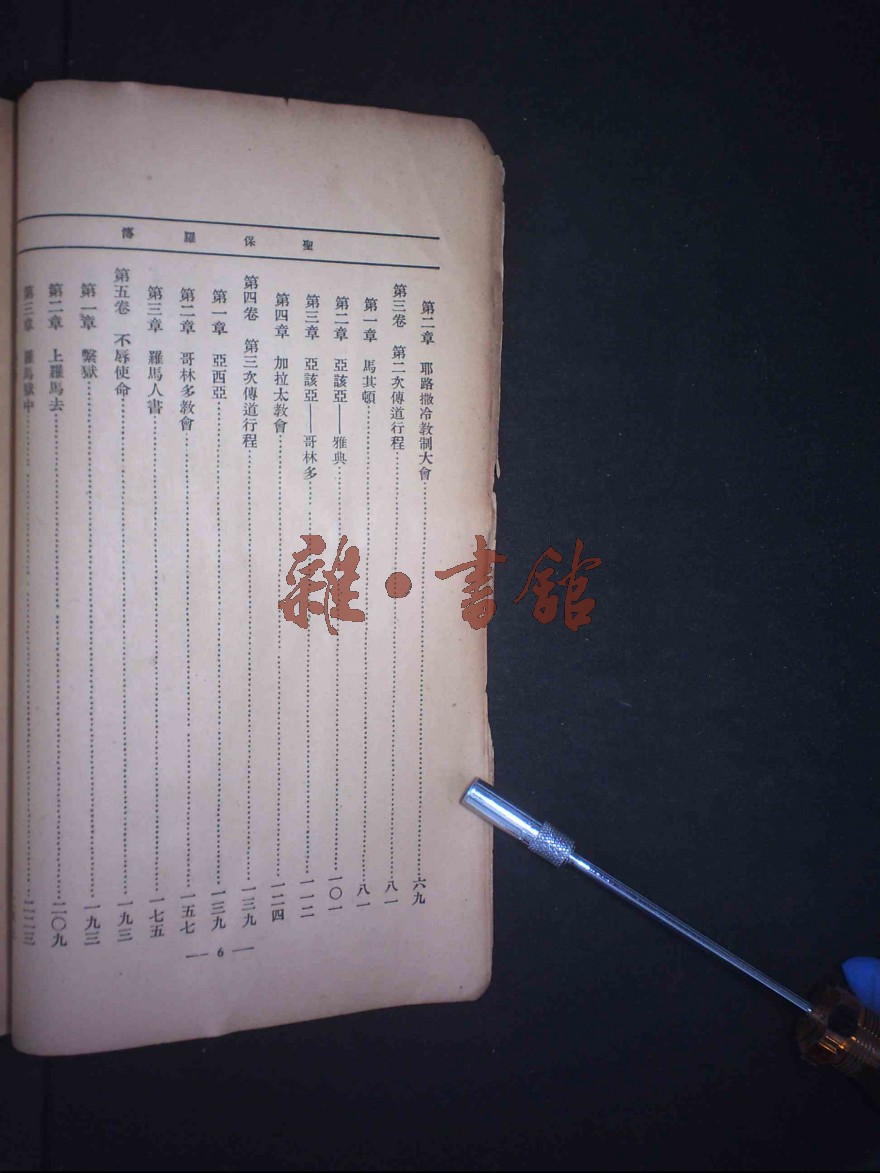 聖保羅傳
第二章　耶路撒冷教制大會………六九
第三卷　第二次傳道行程………八一
第一章　馬其頓………八一
第二章　亞該亞——雅典………一〇一
第三章　亞該亞——哥林多………一一二
第四章　加拉太教會………一二四
第四卷　第三次傳道行程………一三九
第一章　亞西亞………一三九
第二章　哥林多教會………一五七
第三章　羅馬人書………一七五
第五卷　不辱使命………一九三
第一章　繫獄………一九三
第二章　上羅馬去………二〇九
第三章　羅馬獄中………二二三
— 6 —
雜·書館